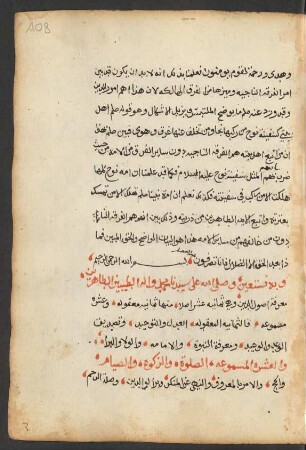 108
وهدى ورحمة لقوم يومنون فعلمنا بذلك انه لا بد ان يكون قد بين
امر الفرقة الناجيه وميزها من الفرق الهالكه لان هذا اهم امور الدين
وقد ورد عنه صلم ما يوضح الملتبس ويزيل الاشكال وهو قوله صلم اهل
بيتي كسفينه نوح من ركبها نجا ومن تخلف عنها غرق وهوى فبين صلم بهذا
ان من اتبع اهل بيته هم الفرقه الناجيه دون ساير الفرق من الامه من حيث
ضرب لهم المثل بسفينه نوح عليه السلام فكما قد علمنا ان امه نوح كلها
هلكت الا من ركب في سفينته فكذلك نعلم ان امة نبينا صلم هلك الا من تمسك
بعترته واتبع الايمه الطاهرين من ذريته وذلك يبين انهم هم الفرقه الناجيه
دون من خالفهم من ساير الامه وهذا هو البيان الواضح والحق المبين فما
ذا بعد الحق الا الضلال فانا تصرفون بسم الله الرحمن الرحيم
وبه نستعين وصلى الله على سيدنا محمد واله الطيبين الطاهرين
معرفة اصول الدين وهي ثمانيه عشر اصلا منها ثمانيه معقوله وعشره
مسموعه فالثمانيه المعقوله هي العدل والتوحيد وتصديق
الوعد والوعيد ومعرفة النبوه والامامه والولا والبرا
والعشره المسموعه الصلوة والزكوة والصيام
والحج والامر بالمعروف والنهي عن المنكر وبر الوالدين وصلة الرحم